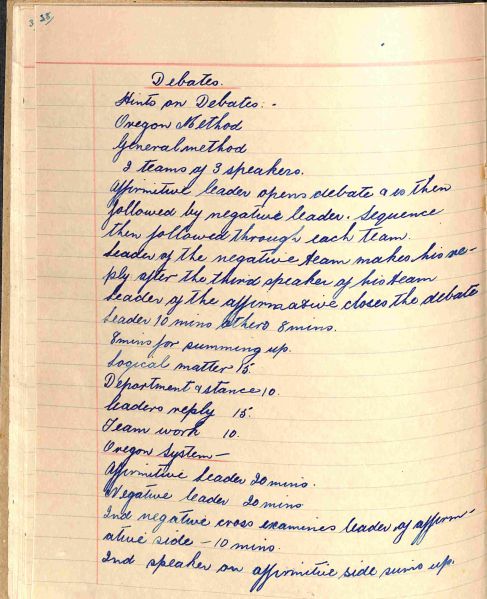 3 28/
Debates.
Hints on Debates: -
Oregon Method
General method
3 teams of 3 speakers.
Affirmitive leader opens debate & is then
followed by negative leader. Sequence
then followed through each team.
Leader of the negative team makes his re-
ply after the third speaker of his team
Leader of the affirmative closes the debate
Leader 10 mins others 8 mins.
8 mins for summing up.
Logical matter 15.
Department & stance 10.
leaders reply 15.
Team work 10.
Oregon System -
Affirmitive Leader 20 mins.
Negative leader 20 mins
2nd negative cross examines leader of affirm-
ative side - 10 mins.
2nd speaker on affirmitive side sums up.